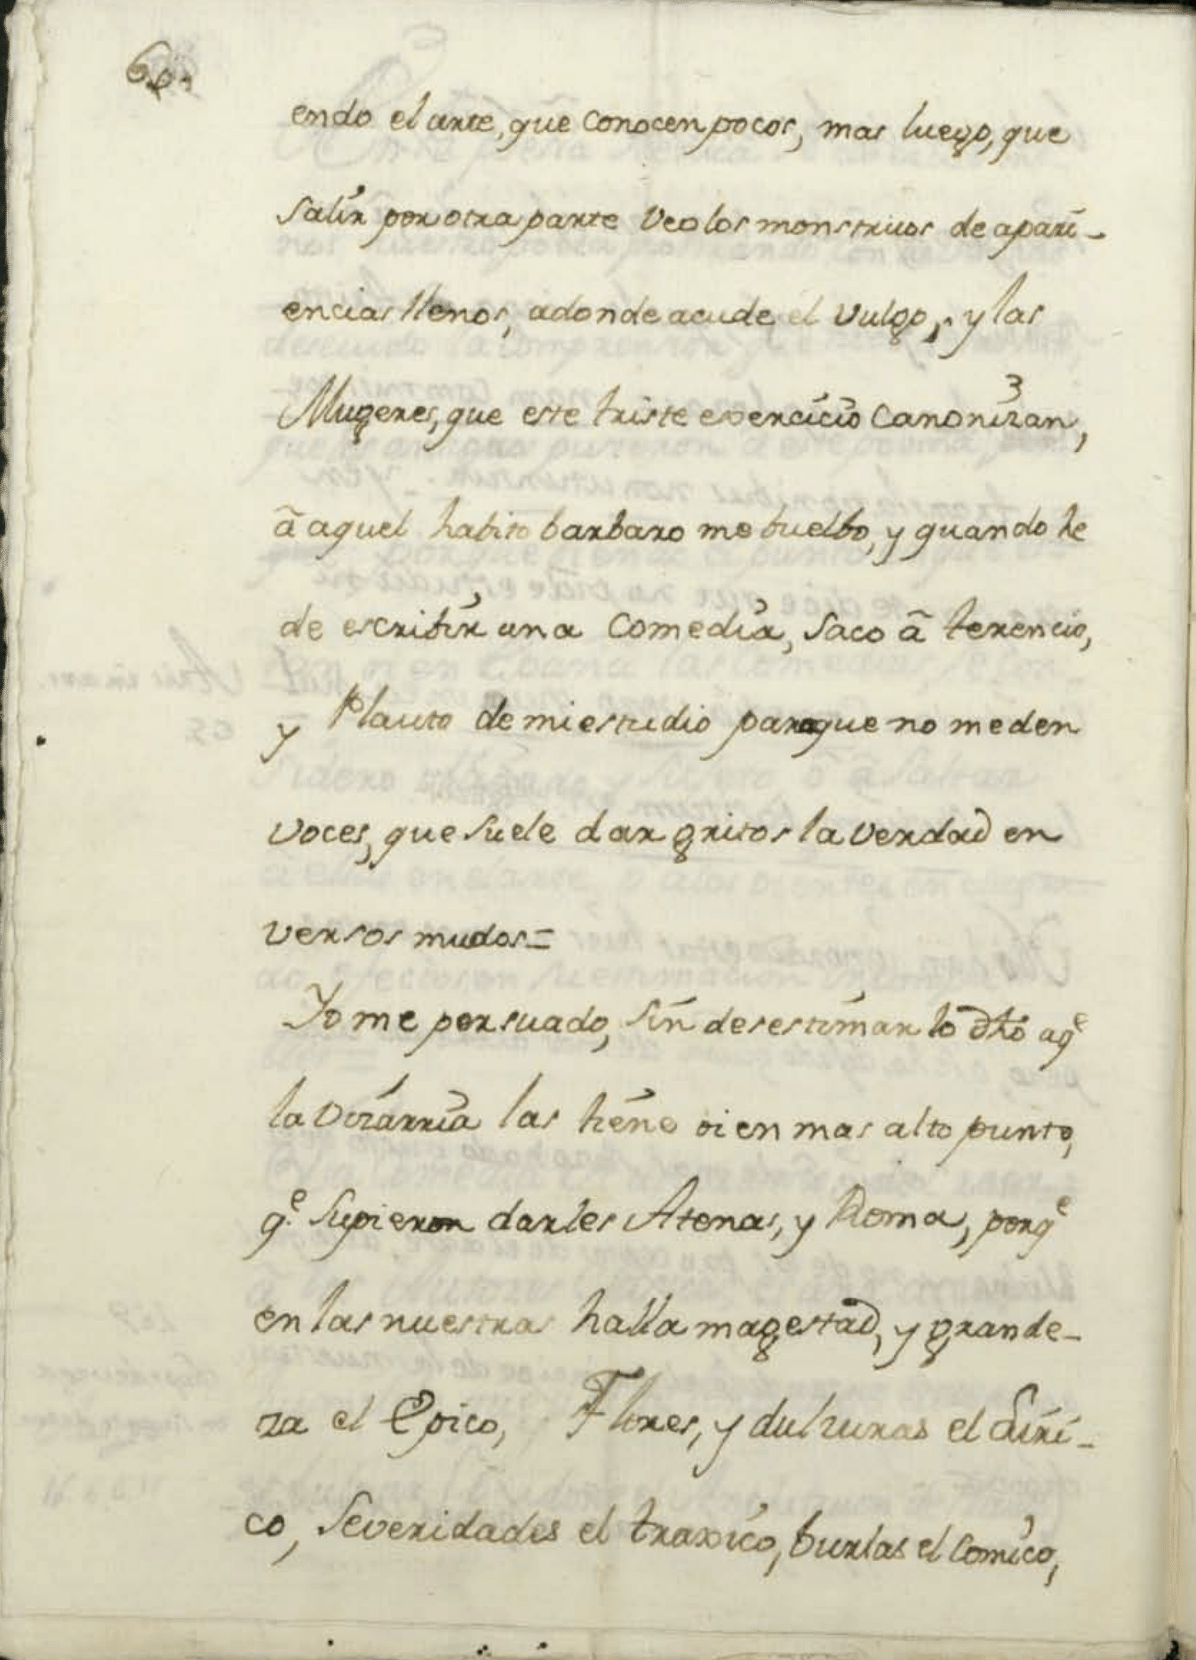 endo el arte, que conocen pocos, mas luego, que
salir por otra parte veo los monstruos de apari-
encias llenos, adonde acude el vulgo, y las
Mugeres, que este triste exercicio canonizan,
â aquel habito barbaro me buelbo, y quando he
de escribir una Comedia, saco â terencio,
y Plauto de mi estudio para que no me den
voces, que suele dar gritos la verdad en
versos mudos=
Yo me persuado, sin desestimar lo dho aqe
la vizarria las tiene oi en mas alto punto,
qe. supieron darles Atenas, y Roma, porqe
en las nuestras halla magestad, y grande-
za el Epico, Flores, y dulzuras el Liri-
co, Severidades el traxico, burlas el Comico,